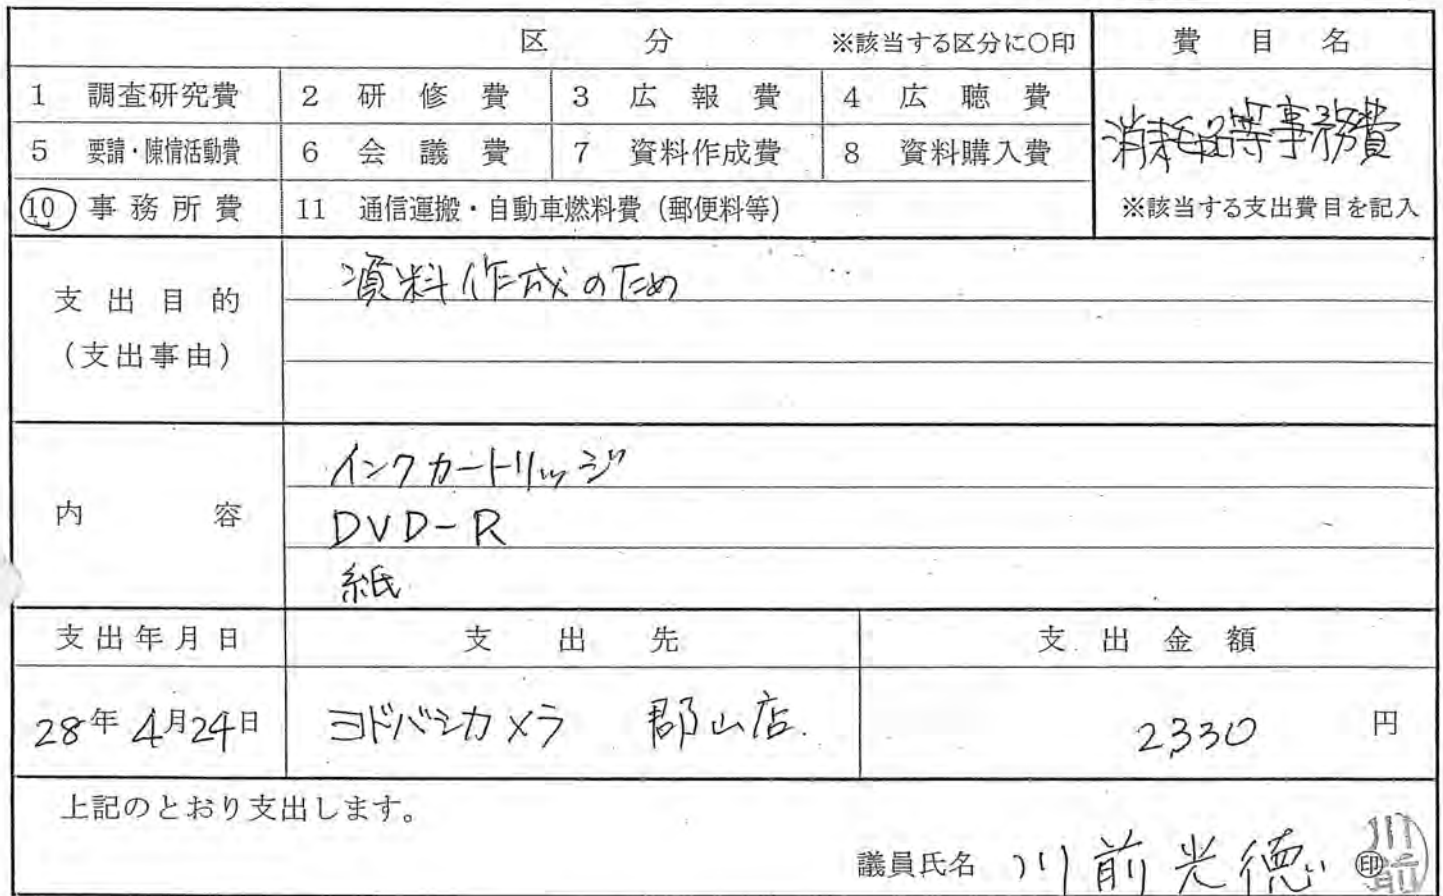 区分 ※該当する区分に○印 費目名
1 調査研究費 2 研修費 3 広報費 4 広聴費
消耗品等事務費
5 要請・陳情活動費 6 会議費 7 資料作成費 8 資料購入費
10 事務所費 11 通信運搬・自動車燃料費（郵便料等） ※該当する支出費目を記入
支出目的
（支出事由）
資料作成のため
内容
インクカートリッジ
DVD-R
紙
支出年月日 支出先 支出金額
28年4月24日 ヨドバシカメラ 郡山店 2330 円
上記のとおり支出します。
議員氏名 川前光徳 ㊞
川前